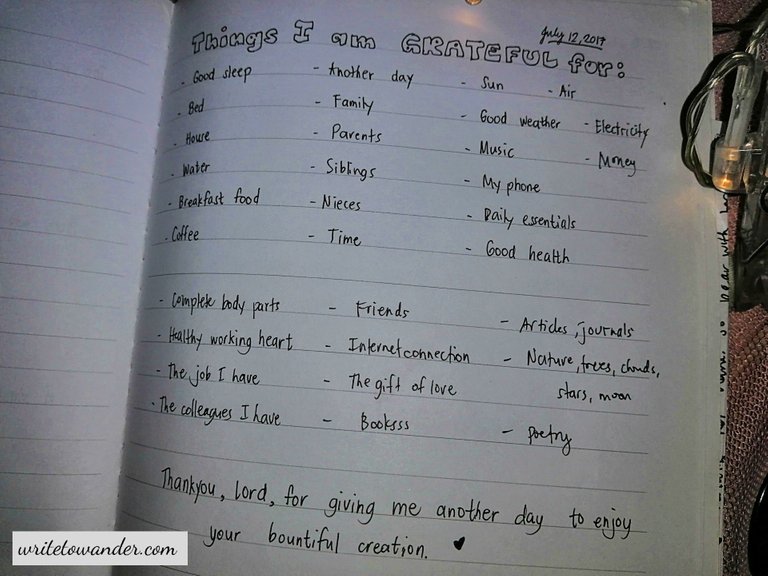 July 12, 2017
Things I am GRATEFUL for:
- Good sleep - Another day - Sun - Air
- Bed - Family - Good weather - Electricity
- House - Parents - Music - Money
- Water - Siblings - My phone
- Breakfast food - Nieces - Daily essentials
- Coffee - Time - Good health
- Complete body parts - Friends - Articles, journals
- Healthy working heart - Internet connection - Nature, trees, clouds,
stars, moon
- The job I have - The gift of love
- The colleagues I have - Booksss - poetry
Thankyou, Lord, for giving me another day to enjoy
your bountiful creation. ♥
writetowander.com